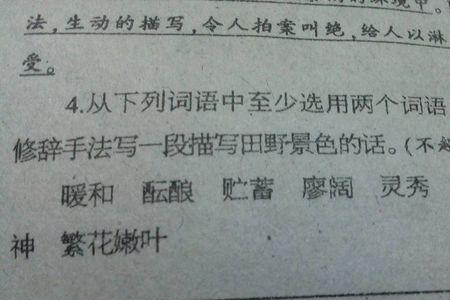 法，生动的描写，令人拍案叫绝，给人以淋
受。
4.从下列词语中至少选用两个词语
修辞手法写一段描写田野景色的话。（不
暖和 酝酿 贮蓄 廖阔 灵秀
神 繁花嫩叶